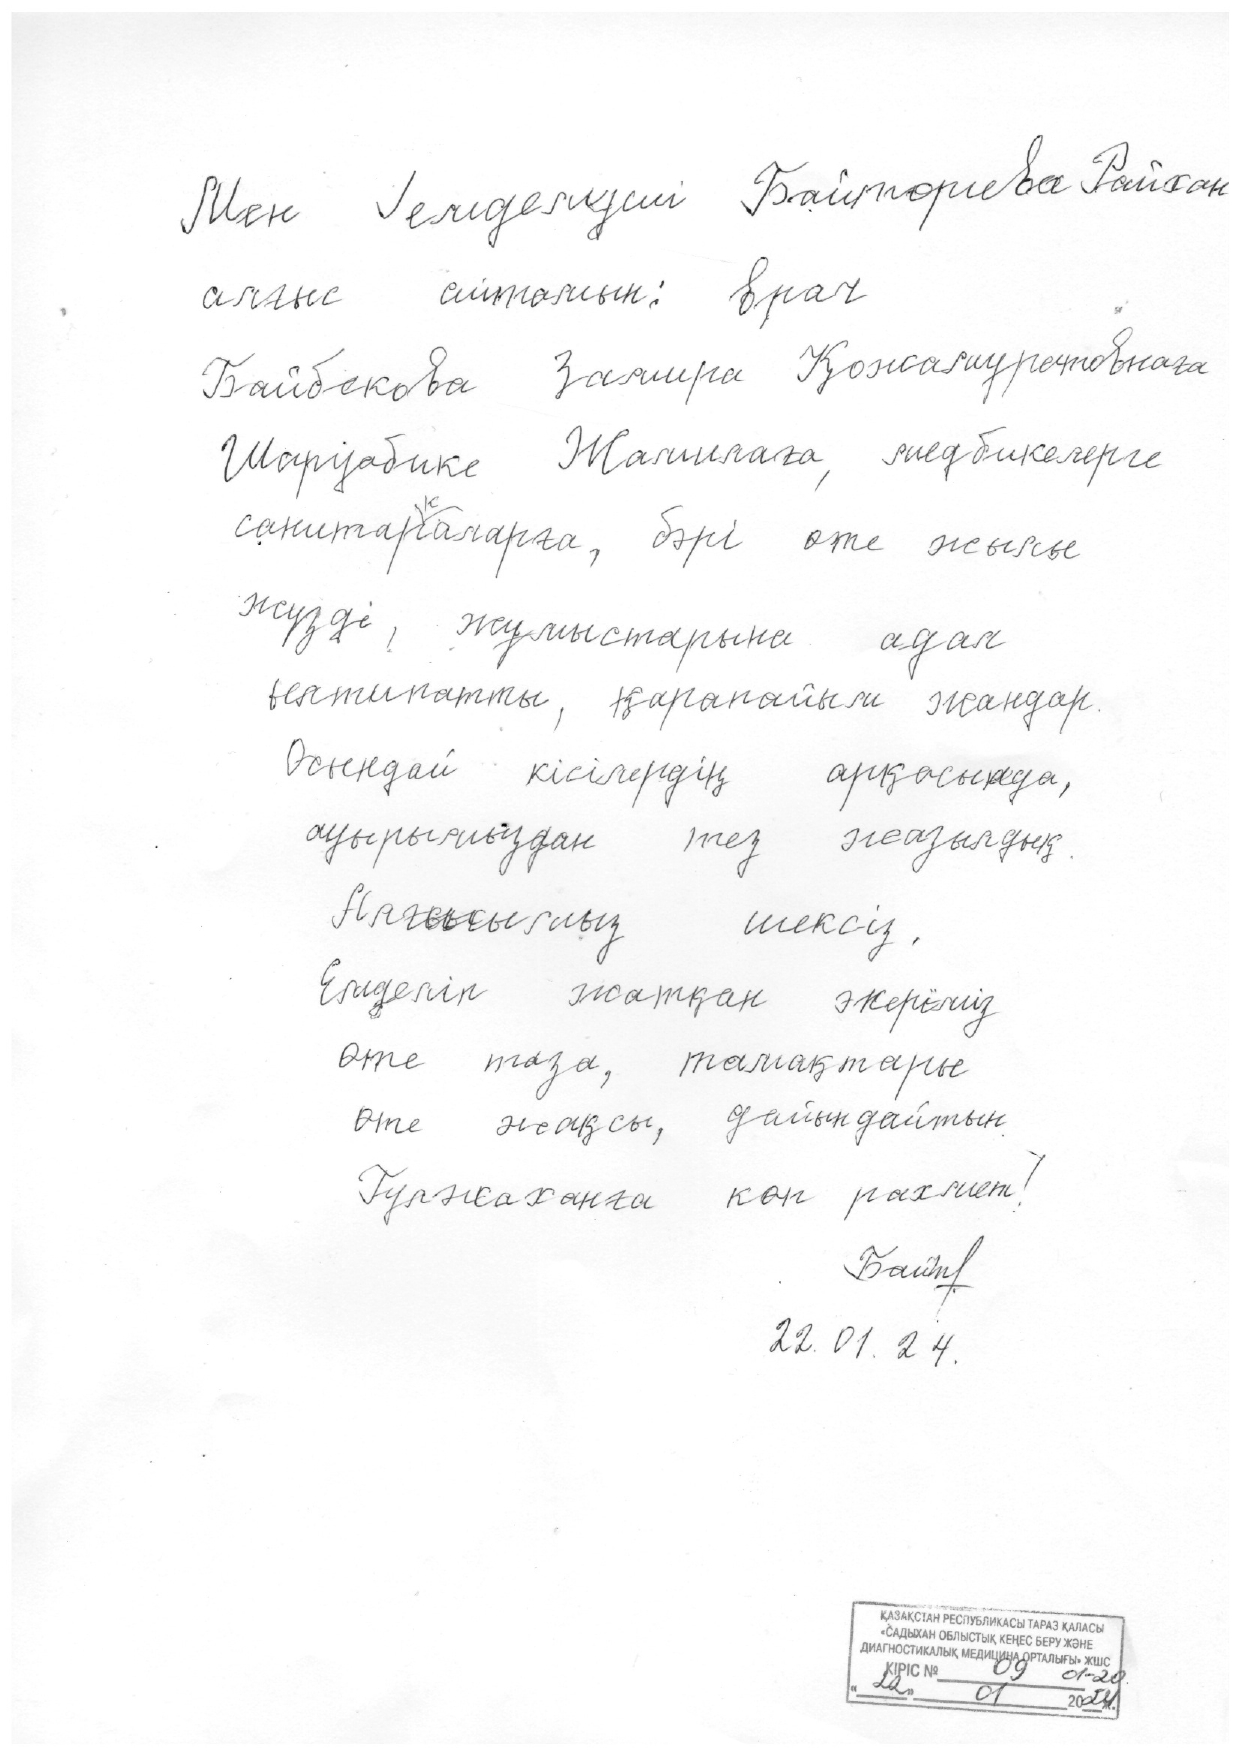 Мен емделуші Байтөриева Райхан
алғыс айтамын: врач
Байбекова Замира Қожамуратовнаға
Шаризабике Жамилаға, медбикелерге
санитаркаларға, бәрі өте жылы
жүзді, жұмыстарына адал
ынтипатты, қарапайым жандар.
Осындай кісілердің арқасында,
ауырымыздан тез жазылдық.
Алғысымыз шексіз,
Емделіп жатқан жеріміз
өте таза, тамақтары
өте жақсы, дайындайтын
Гүлжаханға көп рахмет!
22.01.24.
ҚАЗАҚСТАН РЕСПУБЛИКАСЫ ТАРАЗ ҚАЛАСЫ
«САДЫХАН ОБЛЫСТЫҚ КЕҢЕС БЕРУ ЖӘНЕ
ДИАГНОСТИКАЛЫҚ МЕДИЦИНА ОРТАЛЫҒЫ» ЖШС
КІРІС № 09 01-20
«22» 01 2024 ж.